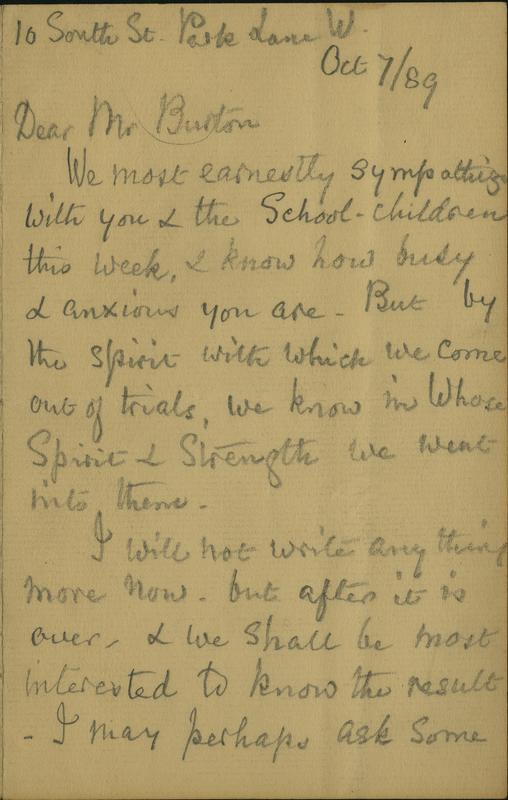 10 South St. Park Lane W.
Oct 7/89
Dear Mr Burton
We most earnestly sympathize
with you & the School-children
this week, & know how busy
& anxious you are - But by
the spirit with which we come
out of trials, we know in Whose
Spirit & Strength we went
into them -
I will not write anything
more now - but after it is
over - & we shall be most
interested to know the result
- I may perhaps ask some